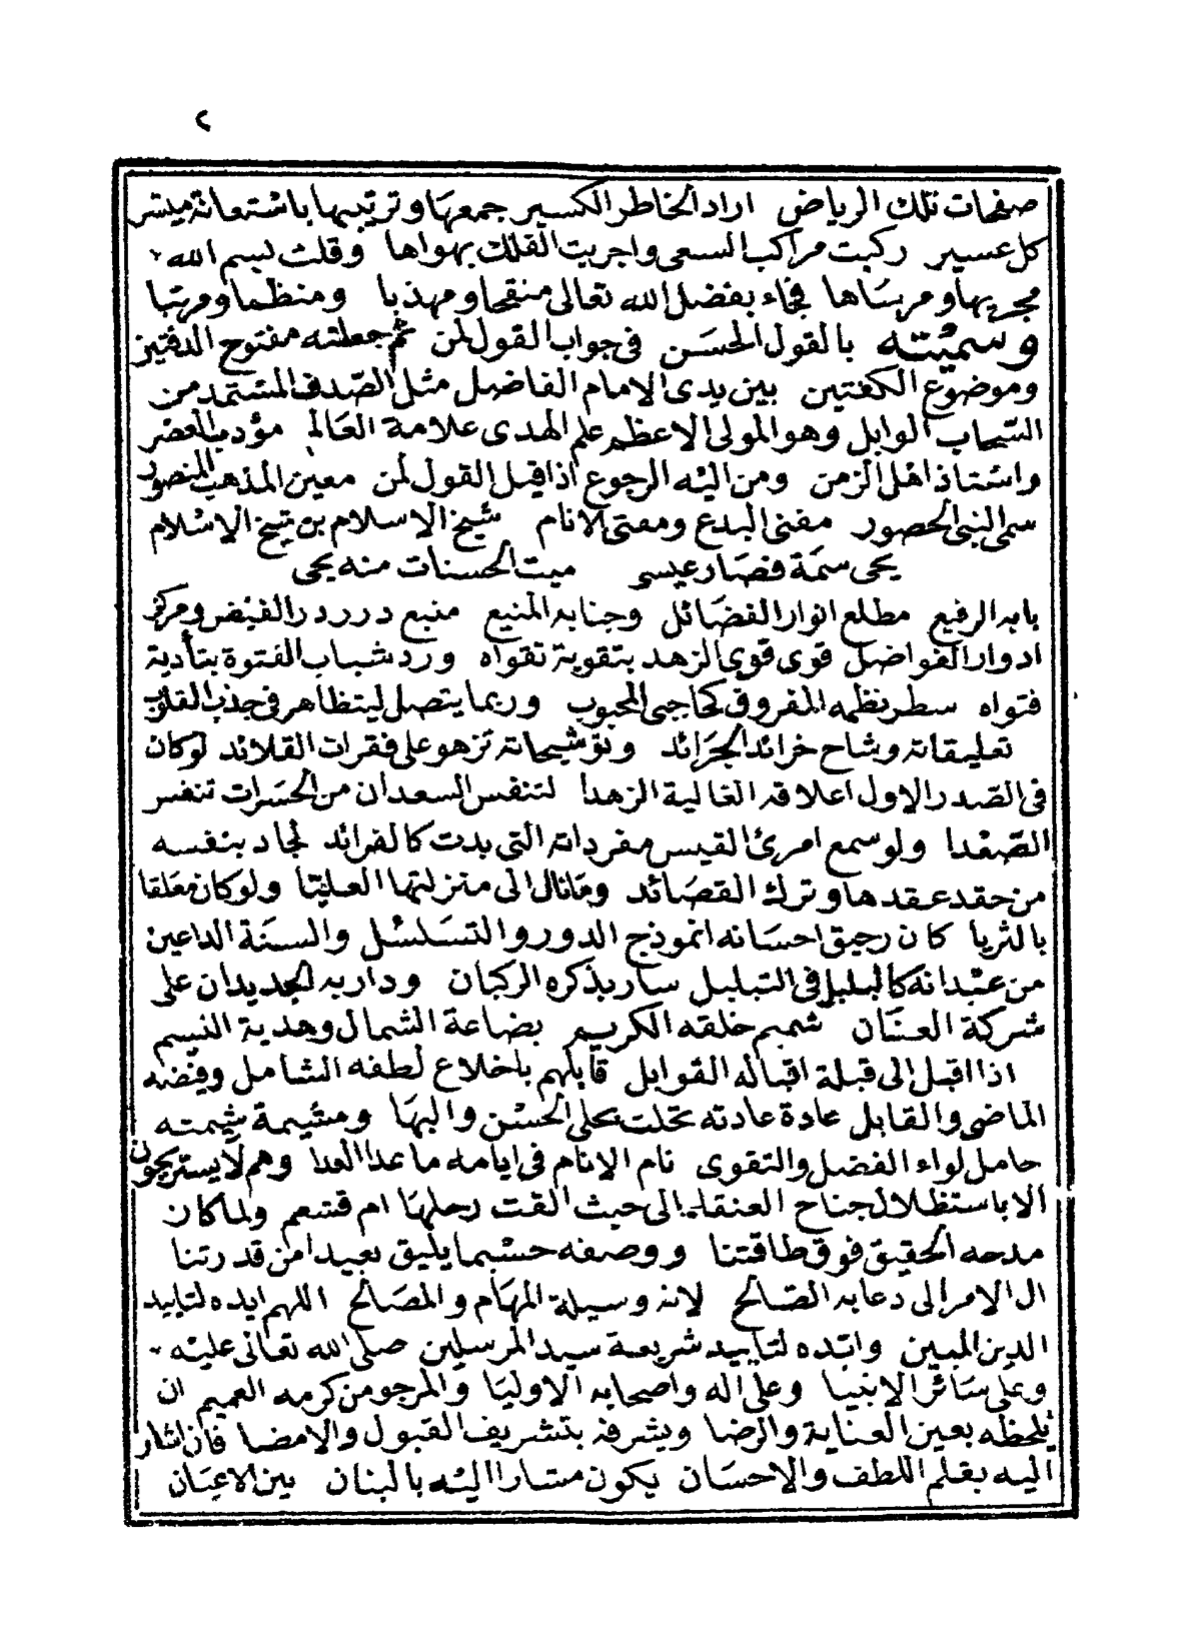 ٢
صفحات تلك الرياض اراد الخاطر الكسير جمعها وترتيبها باستعانة ميسر
كل عسير ركبت مراكب السعى واجريت الفلك بهواها وقلت بسم الله
مجريها ومرساها فجاء بفضل الله تعالى منقحا ومهذبا ومنظما ومرتبا
وسميته بالقول الحسن فى جواب القول لمن ثم جعلته مفتوح الدفتين
وموضوع الكفتين بين يدى الامام الفاضل مثل الصدف المستمد من
السحاب الوابل وهو المولى الاعظم علم الهدى علامة العالم مؤدب العصر
واستاذ اهل الزمن ومن اليه الرجوع اذا قيل القول لمن معين المذهب المنصور
سمى النبى الحصور مفنى البدع ومفتى الانام شيخ الاسلام بن شيخ الاسلام
يحى سمة فصار عيسى ميت الحسنات منه يحى
بابه الرفيع مطلع انوار الفضائل وجنابه المنيع منبع درر در الفيض ومركز
ادوار الفواضل قوى قوى الزهد بتقوية تقواه ورد شباب الفتوة بتأدية
فتواه سطر نظمه المفروق كحاجبى المحبوب وربما يتصل ليتظاهر فى جذب القلوب
تعليقاته وشاح خرائد الجرائد وتوشيحاته تزهو على فقرات القلائد لو كان
فى الصدر الاول اعلاقه الغالية الزهدا لتنفس السعدان من الحسرات تنفس
الصعدا ولو سمع امرئ القيس مفرداته التى بدت كالفرائد لجاد بنفسه
من حقد عقدها وترك القصائد وما نال الى منزلتها العليا ولو كان معلقا
بالثريا كان رحيق احسانه انموذج الدور والتسلسل والسنة الداعين
من عبدانه كالبلبل فى التبلبل سار بذكره الركبان ودار به الجديدان على
شركة العنان شميم خلقه الكريم بضاعة الشمال وهدية النسيم
اذا اقبل الى قبلة اقباله القوابل قابلهم باخلاع لطفه الشامل وفيضه
الماضى والقابل عادة عادته تحلت بحلى الحسن والبها ومشيمة شيمته
حامل لواء الفضل والتقوى نام الانام فى ايامه ما عدا العدا وهم لا يستريحون
الا باستظلال جناح العنقاء الى حيث القت رحلها ام قشعم ولما كان
مدحه الحقيق فوق طاقتنا ووصفه حسبما يليق بعيدا من قدرتنا
ال الامر الى دعابه الصالح لانه وسيلة المهام والمصالح اللهم ايده لتاييد
الدين المبين وابده لتاييد شريعة سيد المرسلين صلى الله تعالى عليه
وعلى سائر الانبيا وعلى اله واصحابه الاوليا والمرجو من كرمه العميم ان
يلحظه بعين العناية والرضا ويشرفه بتشريف القبول والامضا فان اشار
اليه بقلم اللطف والاحسان يكون مشارا اليه بالبنان بين الاعيان